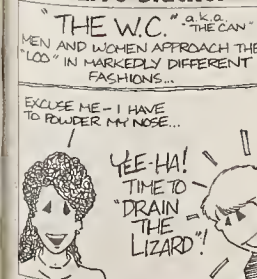 "THE W.C." a.k.a.
"THE CAN"
MEN AND WOMEN APPROACH THE
"LOO" IN MARKEDLY DIFFERENT
FASHIONS...
EXCUSE ME - I HAVE
TO POWDER MY NOSE...
YEE-HA!
TIME TO
"DRAIN
THE
LIZARD"!